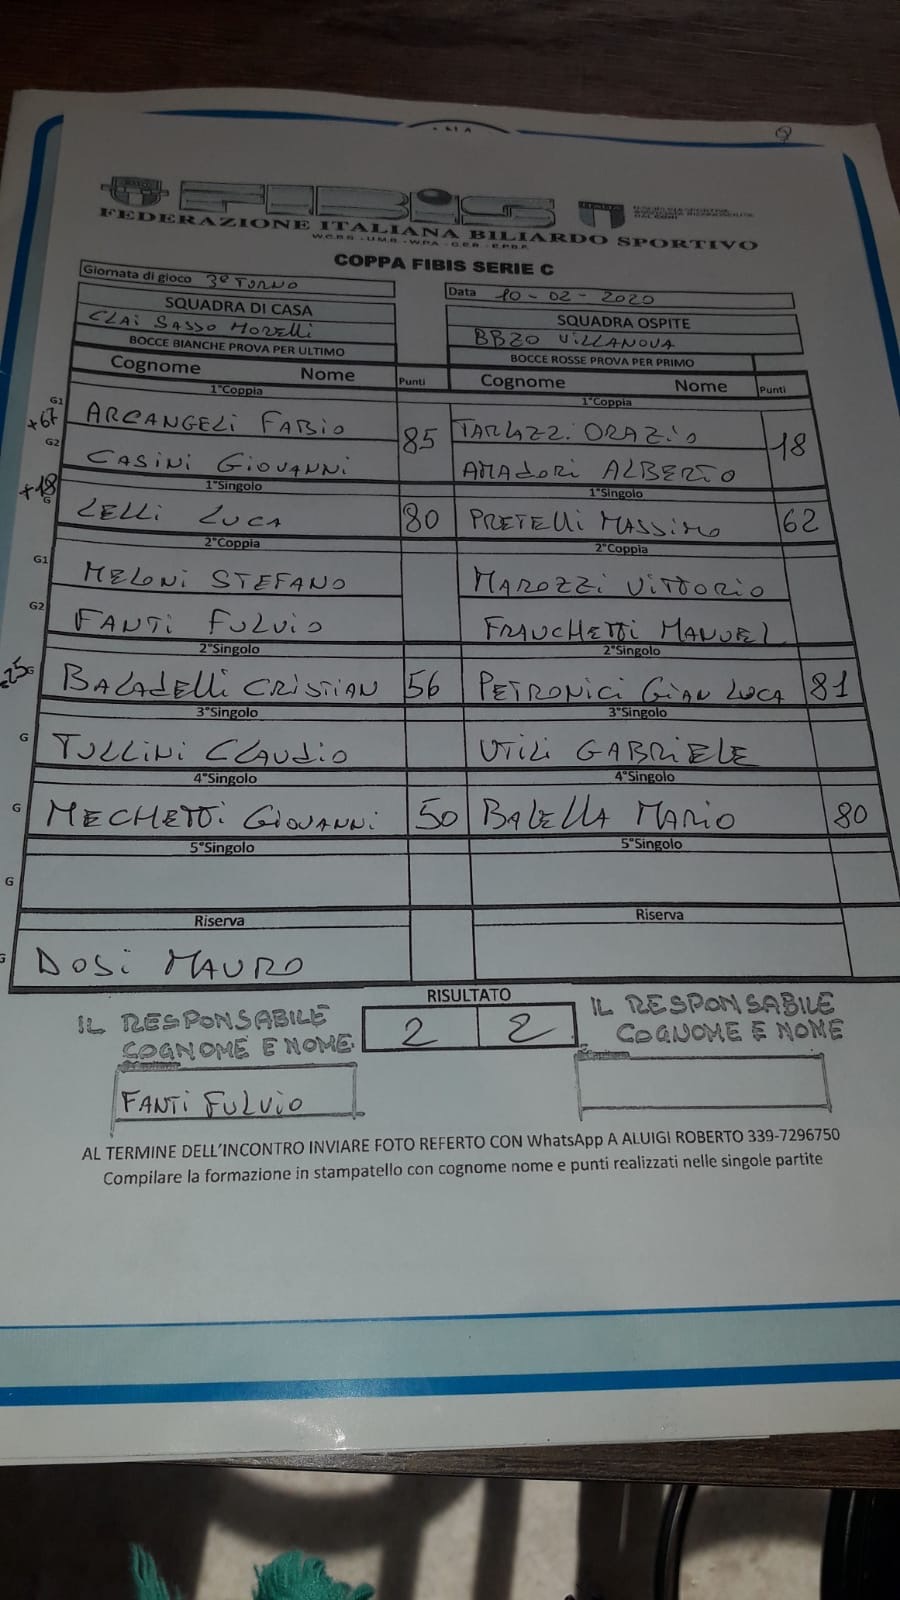 FIBiS
FEDERAZIONE ITALIANA BILIARDO SPORTIVO
COPPA FIBIS SERIE C
Giornata di gioco 3° TURNO
Data 10-02-2020
SQUADRA DI CASA
SQUADRA OSPITE
CLAI SASSO MORELLI
BB20 VILLANOVA
BOCCE BIANCHE PROVA PER ULTIMO
BOCCE ROSSE PROVA PER PRIMO
Cognome Nome Punti Cognome Nome Punti
1°Coppia 1°Coppia
G1 ARCANGELI FABIO 85 TARLAZZI ORAZIO 18
+67
G2 CASINI GIOVANNI AMADORI ALBERTO
1°Singolo 1°Singolo
+18
G LELLI LUCA 80 PRETELLI MASSIMO 62
2°Coppia 2°Coppia
G1 MELONI STEFANO MAROZZI VITTORIO
G2 FANTI FULVIO FRANCHETTI MANUEL
2°Singolo 2°Singolo
-25
G BALADELLI CRISTIAN 56 PETRONICI GIAN LUCA 81
3°Singolo 3°Singolo
G TULLINI CLAUDIO UTILI GABRIELE
4°Singolo 4°Singolo
G MECHETTI GIOVANNI 50 BALELLA MARIO 80
5°Singolo 5°Singolo
G
Riserva Riserva
G DOSI MAURO
RISULTATO
2 2
IL RESPONSABILE
COGNOME E NOME
IL RESPONSABILE
COGNOME E NOME
FANTI FULVIO
AL TERMINE DELL'INCONTRO INVIARE FOTO REFERTO CON WhatsApp A ALUIGI ROBERTO 339-7296750
Compilare la formazione in stampatello con cognome nome e punti realizzati nelle singole partite